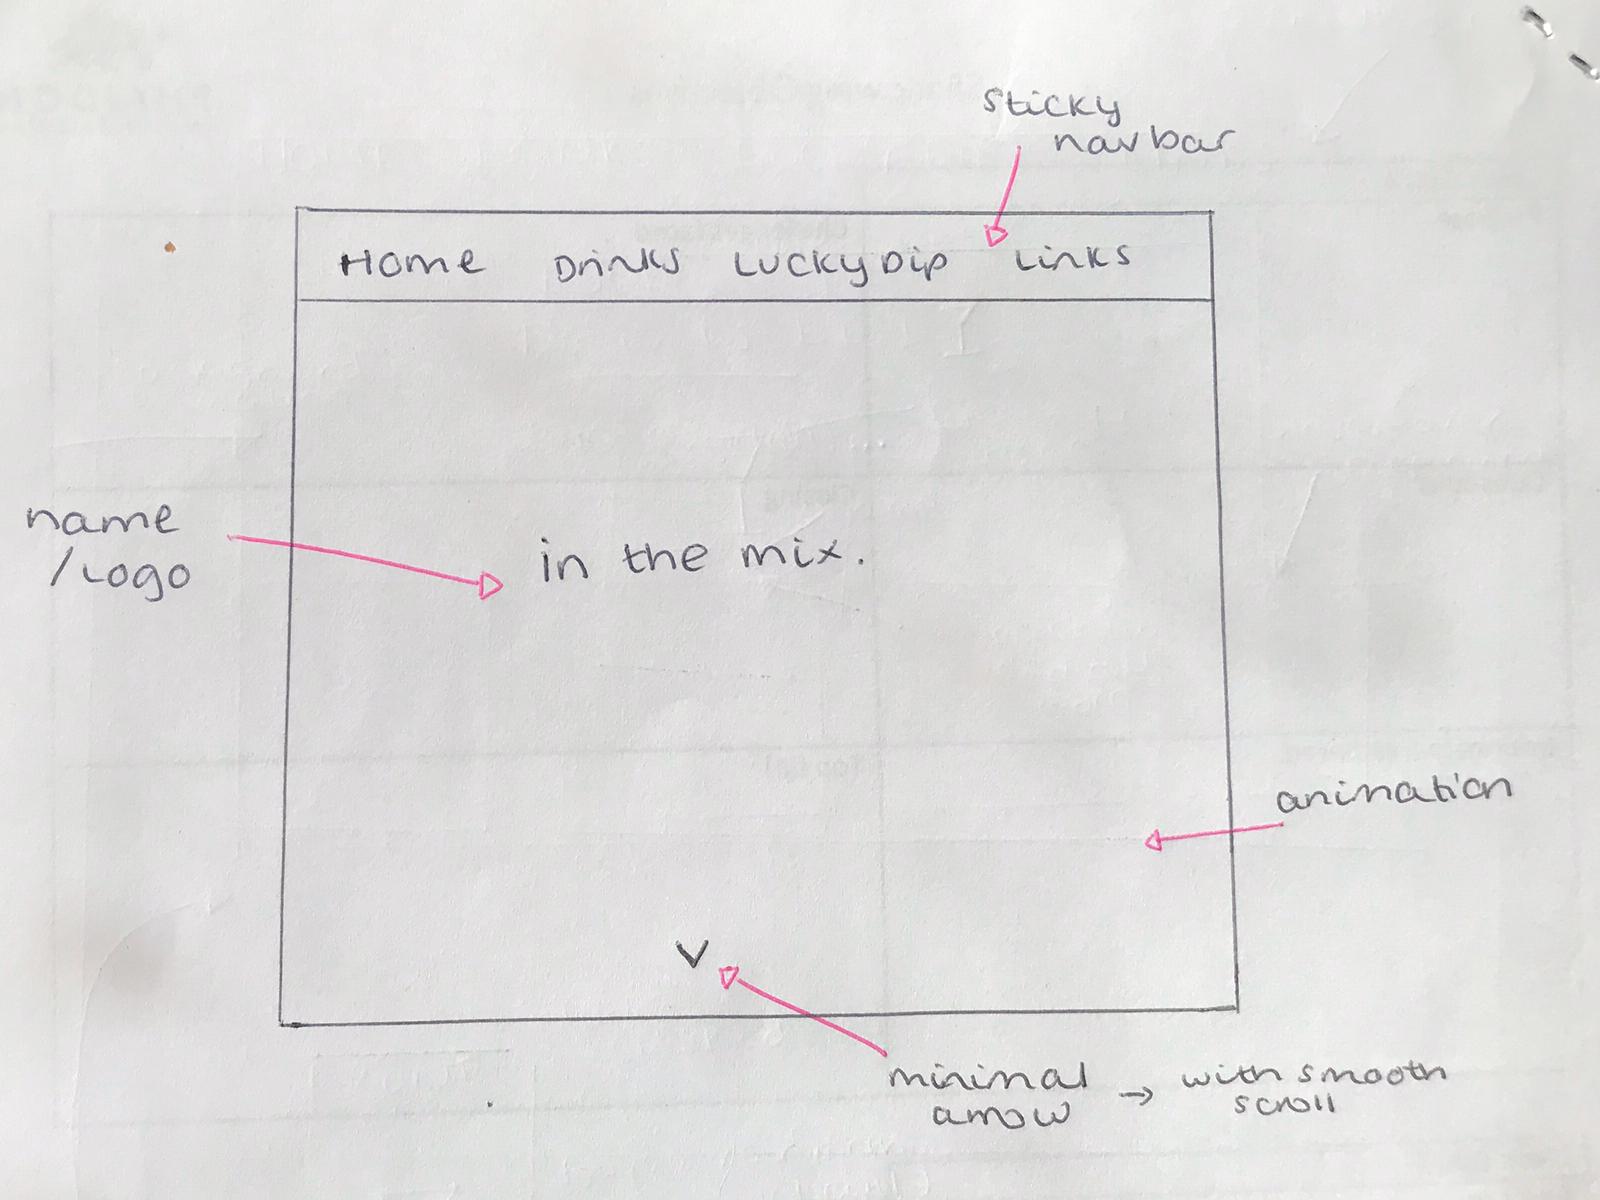 sticky
navbar
Home Drinks LuckyDip Links
name
/Logo
in the mix.
animation
V
minimal → with smooth
arrow scroll